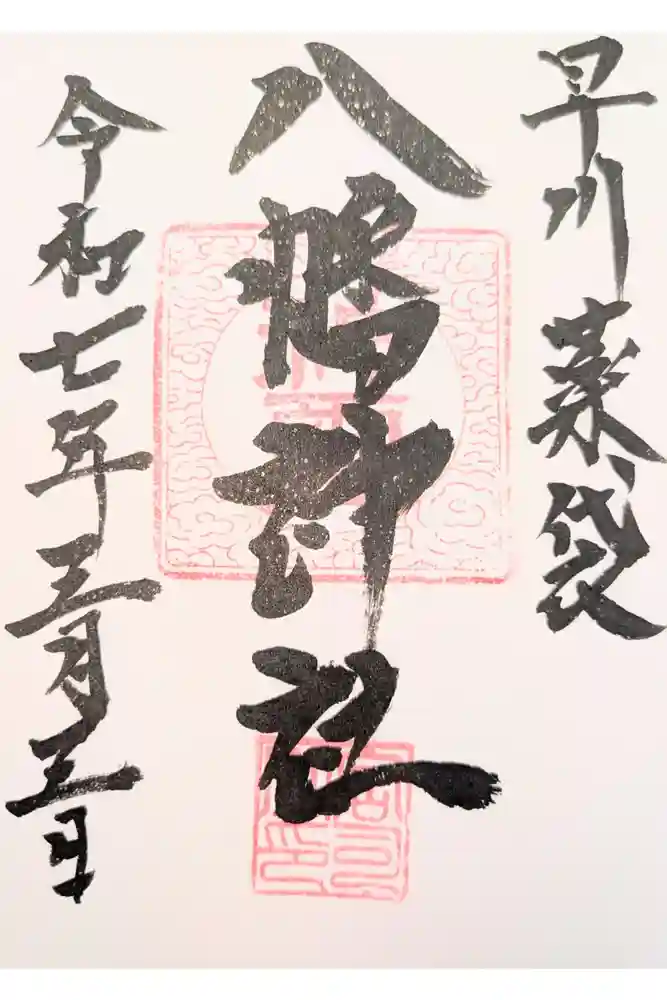 早川藁袋
八幡神社
令和七年三月三日